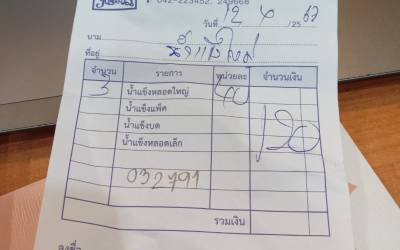 042-223452, 249666
วันที่ 12 /25 67
นาม
ที่อยู่
จำนวน รายการ หน่วยละ จำนวนเงิน
3 น้ำแข็งหลอดใหญ่ 40 120
น้ำแข็งแพ็ค
น้ำแข็งบด
น้ำแข็งหลอดเล็ก
032791
รวมเงิน
ลงชื่อ